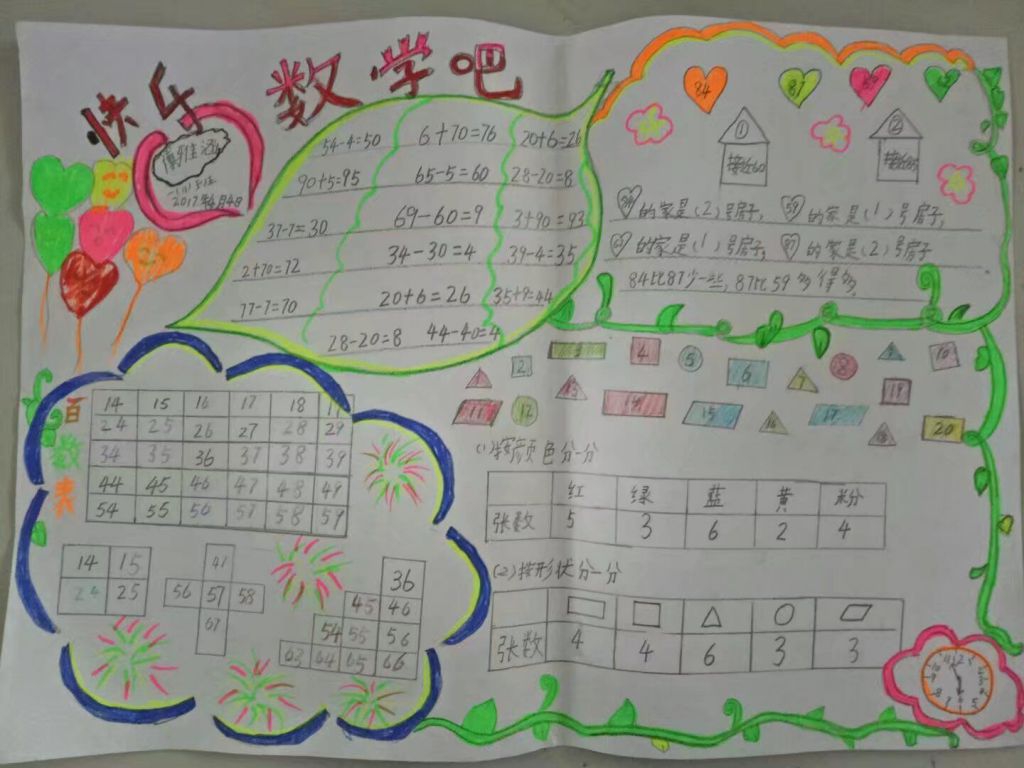 快乐 数学吧
2017年4月4日
54-4=50 6+70=76 20+6=26
90+5=95 65-5=60 28-20=8
37-7=30 69-60=9 3+90=93
2+70=72 34-30=4 39-4=35
77-7=70 20+6=26 35+9=44
28-20=8 44-40=4
84 87
① ②
接近60 接近85
的家是(2)号房子, 59 的家是(1)号房子,
的家是(1)号房子, 87 的家是(2)号房子
84比87少一些, 87比59多得多.
百数表
14 15 16 17 18
24 25 26 27 28 29
34 35 36 37 38 39
44 45 46 47 48 49
54 55 56 57 58 59
14 15
24 25
47
56 57 58
67
36
45 46
54 55 56
63 64 65 66
1 2 3 4 5 6 7 8 9 10
11 12 13 14 15 16 17 18 19 20
(1)按颜色分一分
红 绿 蓝 黄 粉
张数 5 3 6 2 4
(2)按形状分一分
张数 4 4 6 3 3